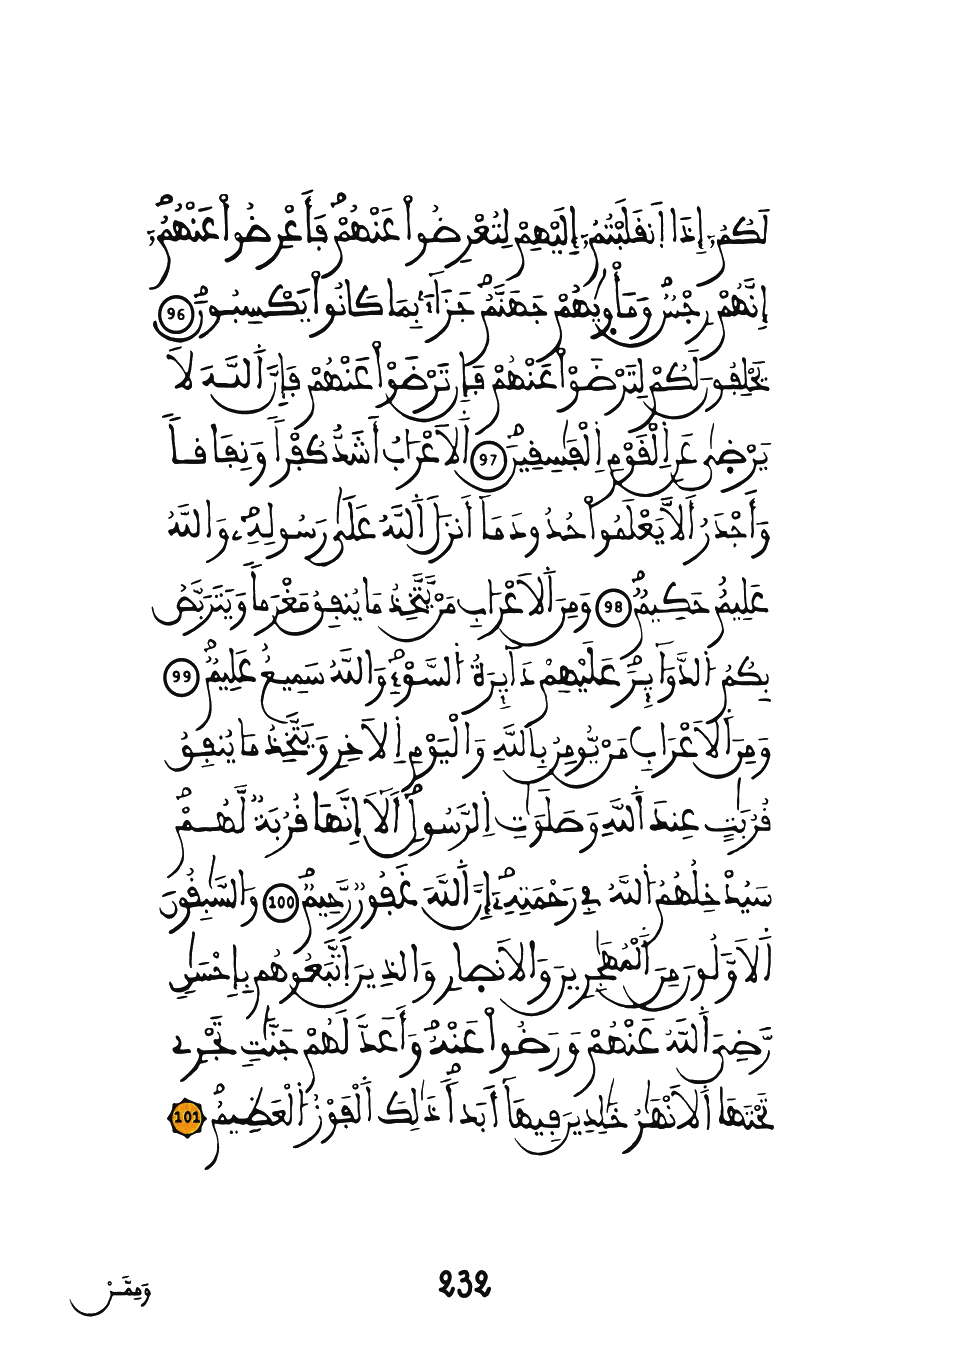 لَكُمُۥٓ إِذَا اَ۪نقَلَبْتُمُۥٓ إِلَيْهِمْ لِتُعْرِضُواْ عَنْهُمْۖ فَأَعْرِضُواْ عَنْهُمُۥٓۖ
إِنَّهُمْ رِجْسٞۖ وَمَأْو۪يٰهُمْ جَهَنَّمُۖ جَزَآءَۢ بِمَا كَانُواْ يَكْسِبُونَۖ 96
يَحْلِفُونَ لَكُمْ لِتَرْضَوْاْ عَنْهُمْ فَإِن تَرْضَوْاْ عَنْهُمْ فَإِنَّ اَ۬للَّهَ لَا
يَرْض۪يٰ عَنِ اِ۬لْقَوْمِ اِ۬لْفَٰسِقِينَۖ 97 اَ۬لَاعْرَابُ أَشَدُّ كُفْراٗ وَنِفَاقاٗ
وَأَجْدَرُ أَلَّا يَعْلَمُواْ حُدُودَ مَآ أَنزَلَ اَ۬للَّهُ عَلَيٰ رَسُولِهِۦۖ وَاللَّهُ
عَلِيمٌ حَكِيمٞۖ 98 وَمِنَ اَ۬لَاعْرَابِ مَنْ يَّتَّخِذُ مَا يُنفِقُ مَغْرَماٗ وَيَتَرَبَّصُ
بِكُمُ اُ۬لدَّوَآئِرَۖ عَلَيْهِمْ دَآئِرَةُ اُ۬لسَّوْءِۖ وَاللَّهُ سَمِيعٌ عَلِيمٞۖ 99
وَمِنَ اَ۬لَاعْرَابِ مَنْ يُّومِنُ بِاللَّهِ وَالْيَوْمِ اِ۬لَاخِرِ وَيَتَّخِذُ مَا يُنفِقُ
قُرُبَٰتٍ عِندَ اَ۬للَّهِ وَصَلَوَٰتِ اِ۬لرَّسُولِۖ أَلَآ إِنَّهَا قُرُبَةٞ لَّهُمْۖ
سَيُدْخِلُهُمُ اُ۬للَّهُ فِي رَحْمَتِهِۦٓۖ إِنَّ اَ۬للَّهَ غَفُورٞ رَّحِيمٞۖ 100 وَالسَّٰبِقُونَ
اَ۬لَاوَّلُونَ مِنَ اَ۬لْمُهَٰجِرِينَ وَالَانصِ۪ارِ وَالذِينَ اَ۪تَّبَعُوهُم بِإِحْسَٰنٖ
رَّضِيَ اَ۬للَّهُ عَنْهُمْ وَرَضُواْ عَنْهُۖ وَأَعَدَّ لَهُمْ جَنَّٰتٖ تَجْرِي
تَحْتَهَا اَ۬لَانْهَٰرُ خَٰلِدِينَ فِيهَآ أَبَداٗۖ ذَٰلِكَ اَ۬لْفَوْزُ اُ۬لْعَظِيمُۖ 101
232
وَمِمَّنْ